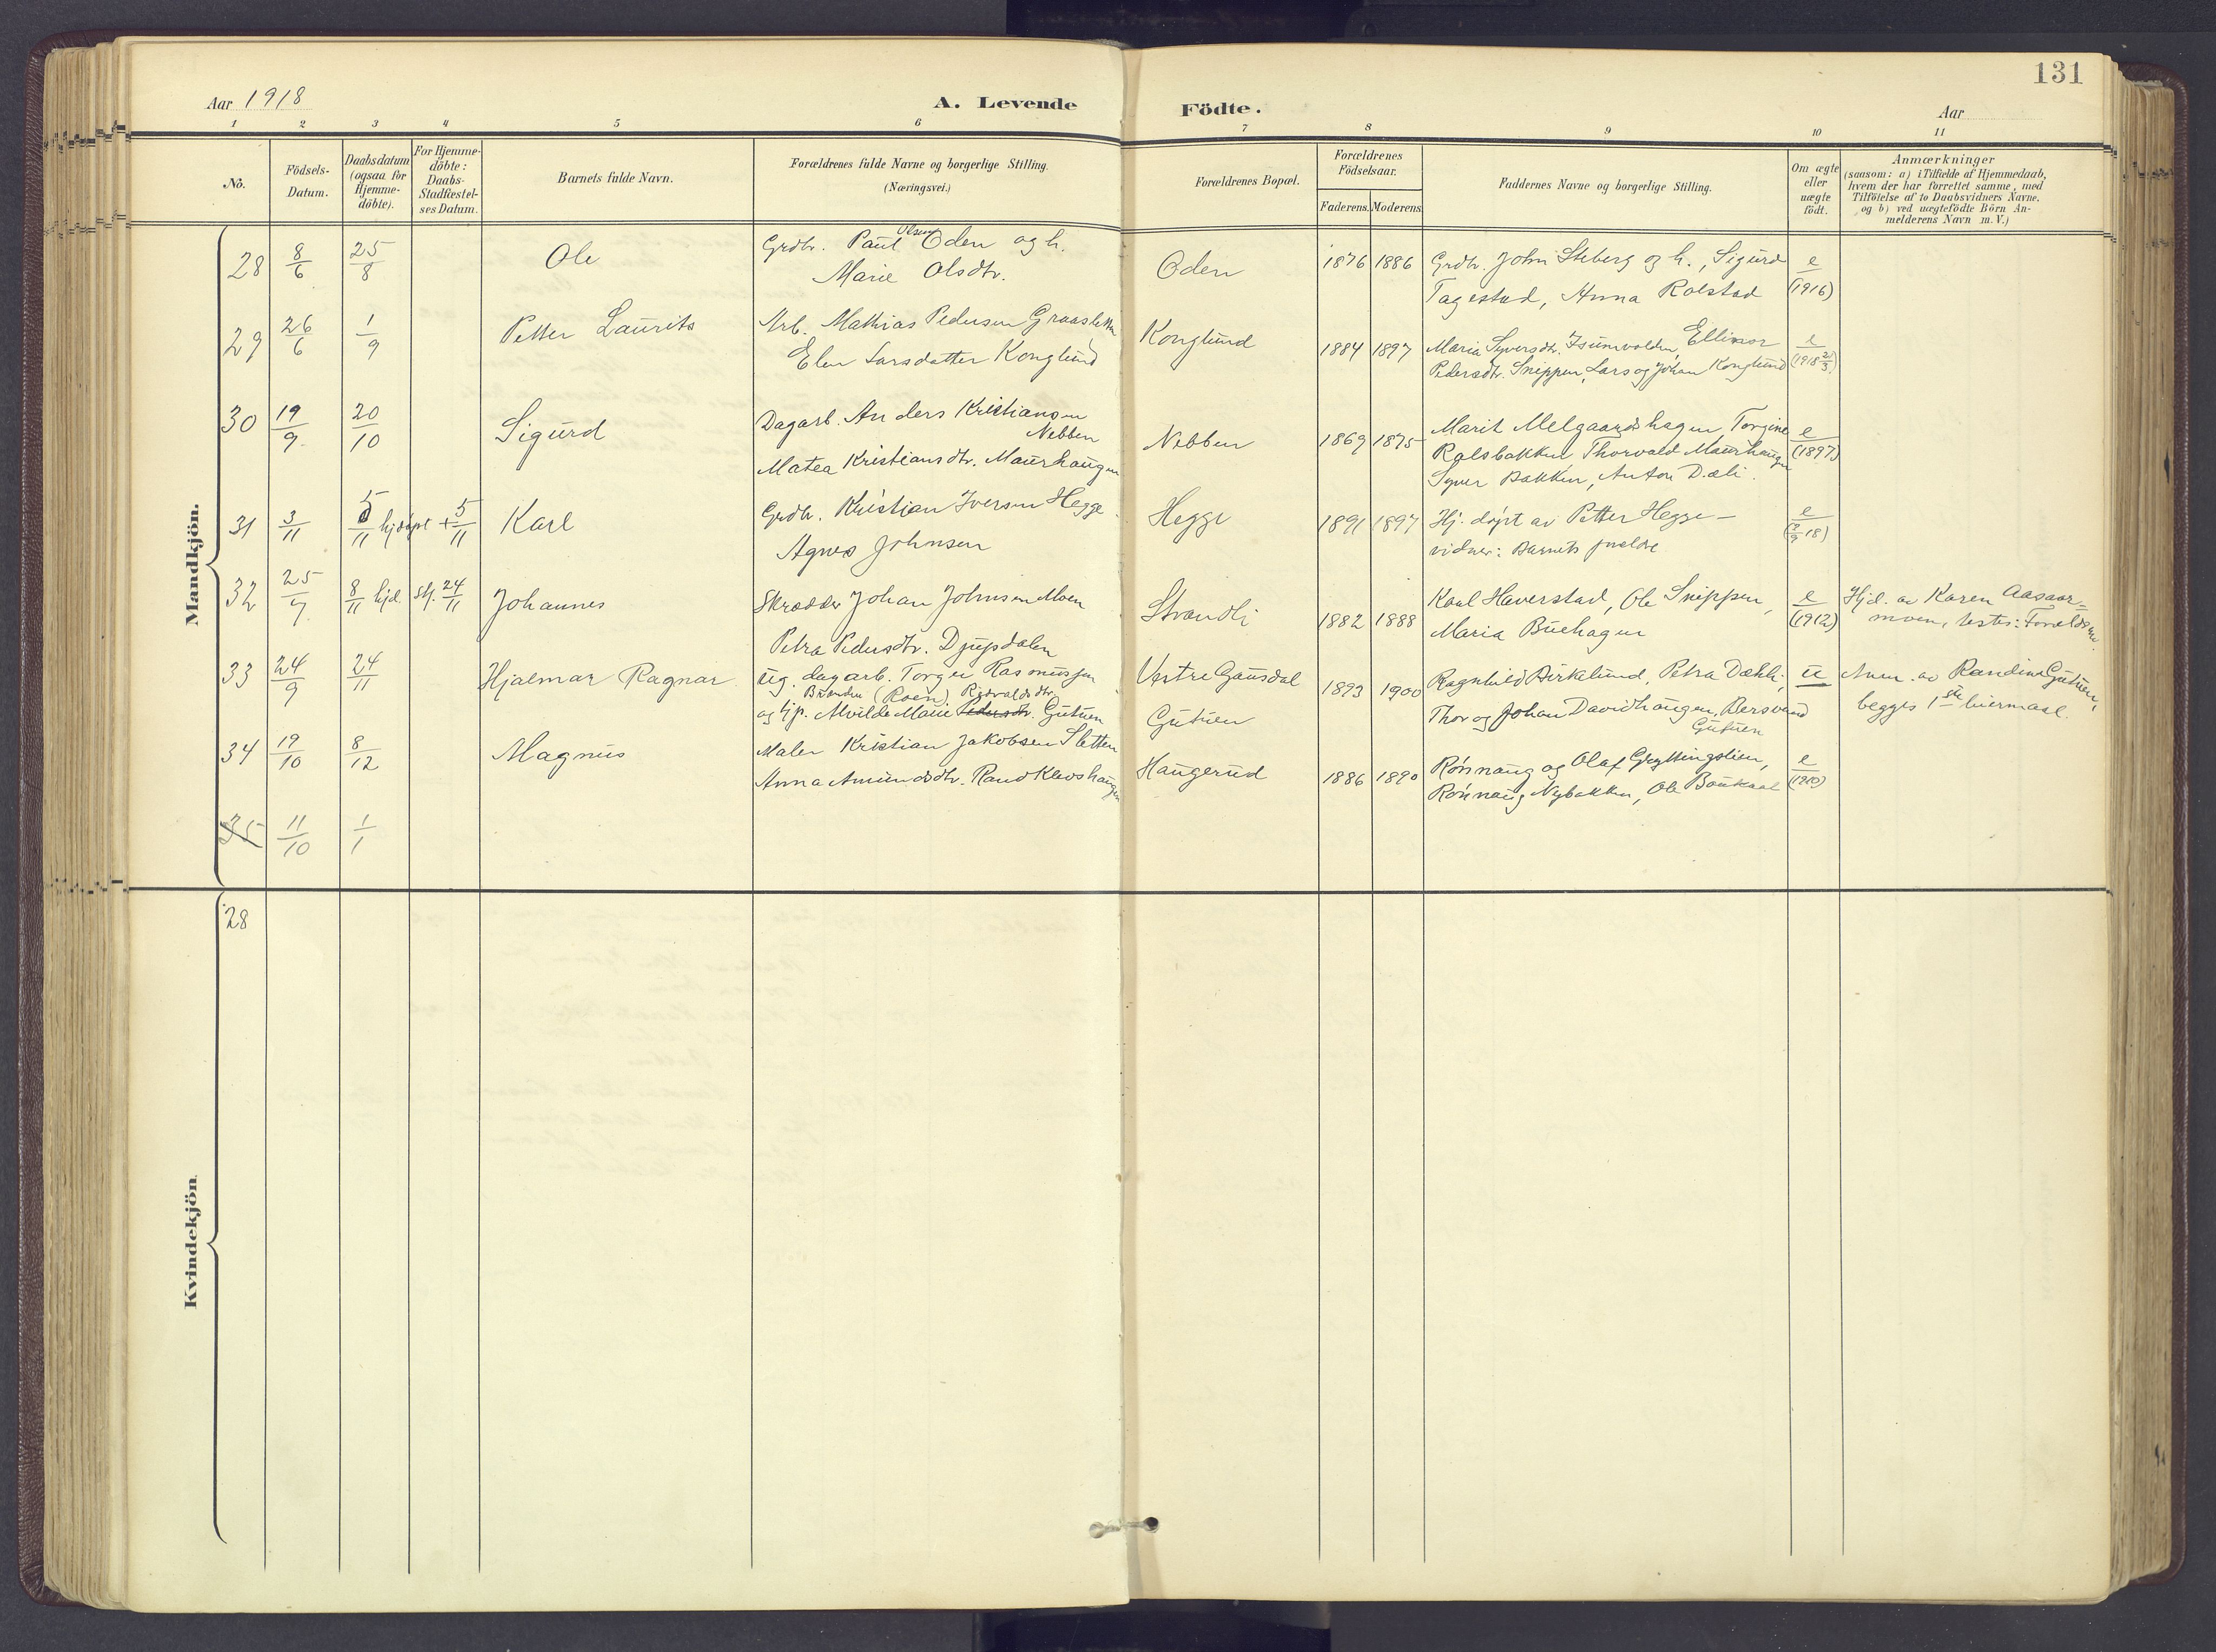 131
Aar 1918
A. Levende
Födte.
Aar
1 2 3 4 5 6 7 8 9 10 11
No.
Födsels-
Datum.
Daabsdatum
(ogsaa for
Hjemme-
döbte).
For Hjemme-
döbte:
Daabs-
Stadfæstel-
ses Datum.
Barnets fulde Navn.
Forældrenes fulde Navne og borgerlige Stilling.
(Næringsvei.)
Forældrenes Bopæl.
Forældrenes
Födselsaar.
Faderens. Moderens.
Faddernes Navne og borgerlige Stilling.
Om ægte
eller
uægte
födt.
Anmærkninger
(saasom: a) i Tilfælde af Hjemmedaab,
hvem der har forrettet samme, med
Tilföielse af to Daabsvidners Navne,
og b) ved uægtefödte Börn An-
melderens Navn m. V.)
Mandkjön.
28 8/6 25/8 Ole
Grdbr. Paul Olsen Öden og h.
Marie Olsdtr.
Öden 1876 1886
Grdbr. John Steberg og h., Sigurd
Tagestad, Anna Rolstad
e
(1916)
29 26/6 1/9 Petter Laurits
Arb. Mathias Pedersen Graasletten
Elen Larsdatter Konglund
Konglund 1884 1897
Maria Syversdtr. Isumvolden, Ellinor
Pedersdtr. Snippen, Lars og Johan Konglund
e
(1918 2/3)
30 19/9 20/10 Sigurd
Dagarb. Anders Kristiansen
Nebben
Matea Kristiansdtr. Maurhaugen
Nebben 1869 1875
Marit Melgaardshagen, Torgine
Rolsbakken Thorvald Maurhaugen
Syver Bakken, Anton Dæli.
e
(1897)
31 3/11 5/11 hjdöpt +5/11 Karl
Grdbr. Kristian Iversen Hegge
Agnes Johnsen
Hegge 1891 1897
Hj. döpt av Petter Hegge –
vidner: Barnets forældre
e
32 25/7 8/11 hjd. stf. 24/11 Johannes
Skrædder Johan Johnsen Moen
Petra Pedersdtr. Djupdalen
Strandli 1882 1888
Karl Haverstad, Ole Snippen,
Maria Buehagen
e
(1912)
Hjd. av Karen Aasaar-
moen, testes: Forældrene.
33 24/9 24/11 Hjalmar Ragnar
ug. dagarb. Torger Rasmussen
Brænden (Roen) Rodvaldsdtr.
og tjp. Alvilde Marie Pedersdtr. Gutuen
Vestre Gausdal
Gutuen
1893 1900
Ragnhild Birklund, Petra Dæhli,
Thor og Johan Davidhaugen, Bersvend
Gutuen
u
Anm. av Randine Gutuen,
begges 1ste leiermaal.
34 19/10 8/12 Magnus
Maler Kristian Jakobsen Sletten
Anna Amundsdtr. Randklevshaugen
Haugerud 1886 1890
Rönnaug og Olaf Gryttingslien,
Rönnaug Nybakken, Ole Baukaal
e
(1910)
35 11/10 1/1
Kvindekjön.
28